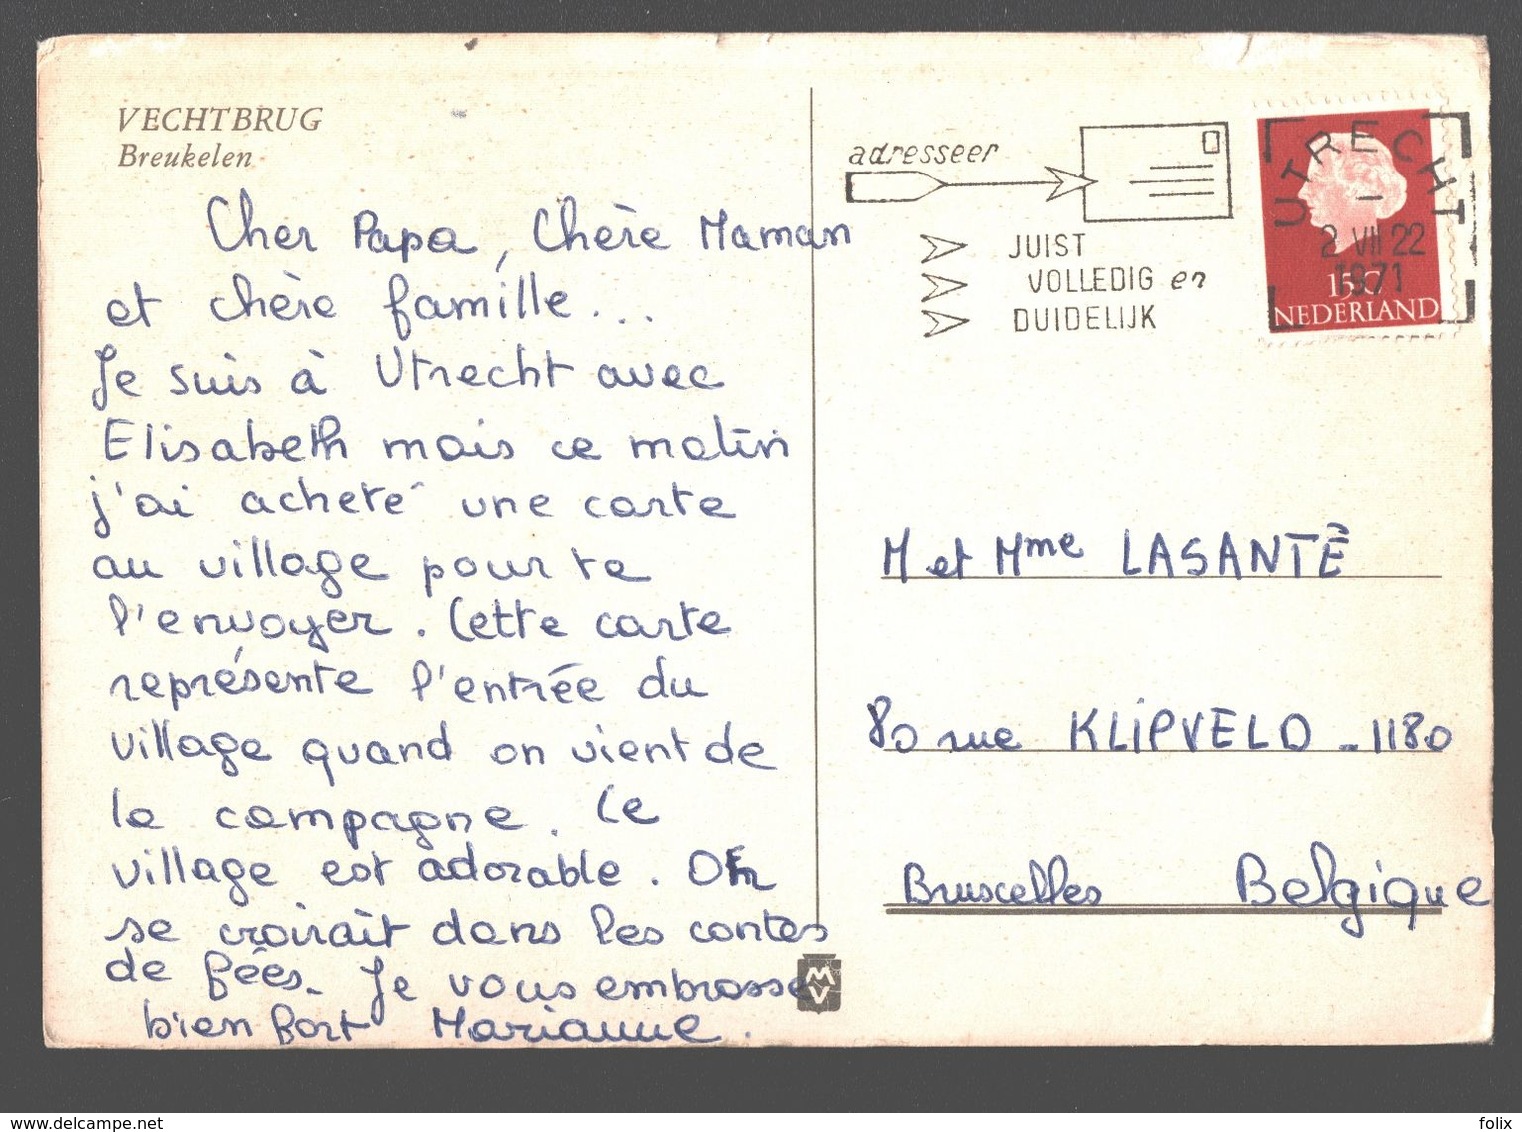 VECHTBRUG
Breukelen
Cher Papa, Chère Maman
et chère famille...
Je suis à Utrecht avec
Elisabeth mais ce matin
j'ai acheté une carte
au village pour te
l'envoyer. Cette carte
représente l'entrée du
village quand on vient de
la campagne. Ce
village est adorable. On
se croirait dans les contes
de fées. Je vous embrasse
bien fort Marianne.
adresseer
JUIST
VOLLEDIG en
DUIDELIJK
UTRECHT
2 VII 22
1971
15 C
NEDERLAND
M et Mme LASANTE
80 rue KLIPVELD - 1180
Bruxelles Belgique
MV
https://www.delcampe.net
folix